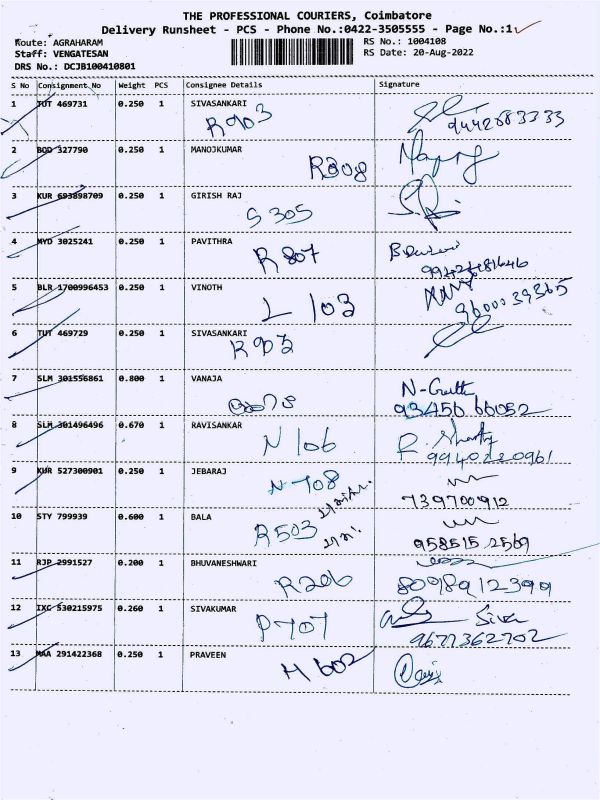 THE PROFESSIONAL COURIERS, Coimbatore
Delivery Runsheet - PCS - Phone No.:0422-3505555 - Page No.:1
Route: AGRAHARAM
Staff: VENGATESAN
DRS No.: DCJB100410801
RS No.: 1004108
RS Date: 20-Aug-2022
S No Consignment No Weight PCS Consignee Details Signature
1 TUT 469731 0.250 1 SIVASANKARI
R903
9442683333
2 BOD 327790 0.250 1 MANOJKUMAR
R308
3 KUR 693898709 0.250 1 GIRISH RAJ
S 305
4 MYD 3025241 0.250 1 PAVITHRA
R 807
5 BLR 1700996453 0.250 1 VINOTH
L 103
3600039365
6 TUT 469729 0.250 1 SIVASANKARI
R903
7 SLM 301556861 0.800 1 VANAJA
93456 66052
8 SLM 301496496 0.670 1 RAVISANKAR
N 106
9940220961
9 KUR 527300901 0.250 1 JEBARAJ
N-708
739700912
10 STY 799939 0.600 1 BALA
R503
958515 2569
11 RJP 2991527 0.200 1 BHUVANESHWARI
R206
8098912399
12 IKC 530215975 0.260 1 SIVAKUMAR
P707
Siva
9677362702
13 MAA 291422368 0.250 1 PRAVEEN
H 602